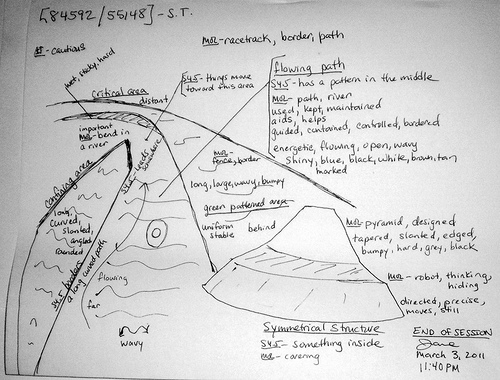 [84592/55148] - S.T.
AI - cautious
MOL - racetrack, border, path
wet, sticky, hard
critical area
distant
SYS - things move
toward this area
flowing path
SYS - has a pattern in the middle
MOL - path, river
used, kept, maintained
aids, helps
guided, contained, controlled, bordered
energetic, flowing, open, wavy
shiny, blue, black, white, brown, tan
marked
important
MOL - bend in
a river
confining area
long,
curved,
slanted,
angled
rounded
SYS - leads
somewhere
MOL -
fence, border
long, large, wavy, bumpy
green patterned area
uniform
stable
behind
SYS - borders
a long curved path
flowing
far
wavy
MOL - pyramid, designed
tapered, slanted, edged,
bumpy, hard, grey, black
MOL - robot, thinking,
hiding
directed, precise,
moves, still
Symmetrical Structure
SYS - something inside
MOL - covering
END OF SESSION
Jane
March 3, 2011
11:40 PM